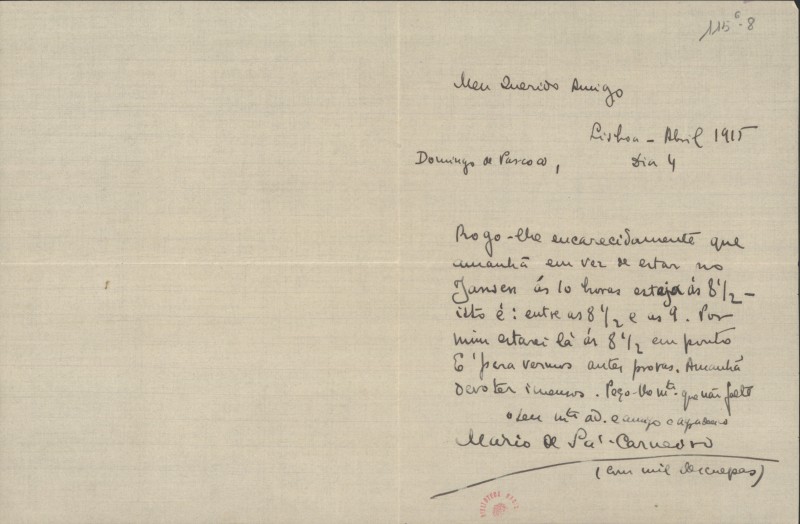 115⁶-8
Meu Querido Amigo
Lisboa – Abril 1915
Domingo de Pascoa, Dia 4
Rogo-lhe encarecidamente que
amanhã em vez de estar no
Jansen ás 10 horas esteja ás 8 1/2 –
isto é: entre as 8 1/2 e as 9. Por
mim estarei lá ás 8 1/2 em ponto
E' para vermos antes provas. Amanhã
devo ter imensos. Peço-lhe mto. que não falte
o seu mto ad. e amigo e
Mario de Sá-Carneiro
(com mil desculpas)